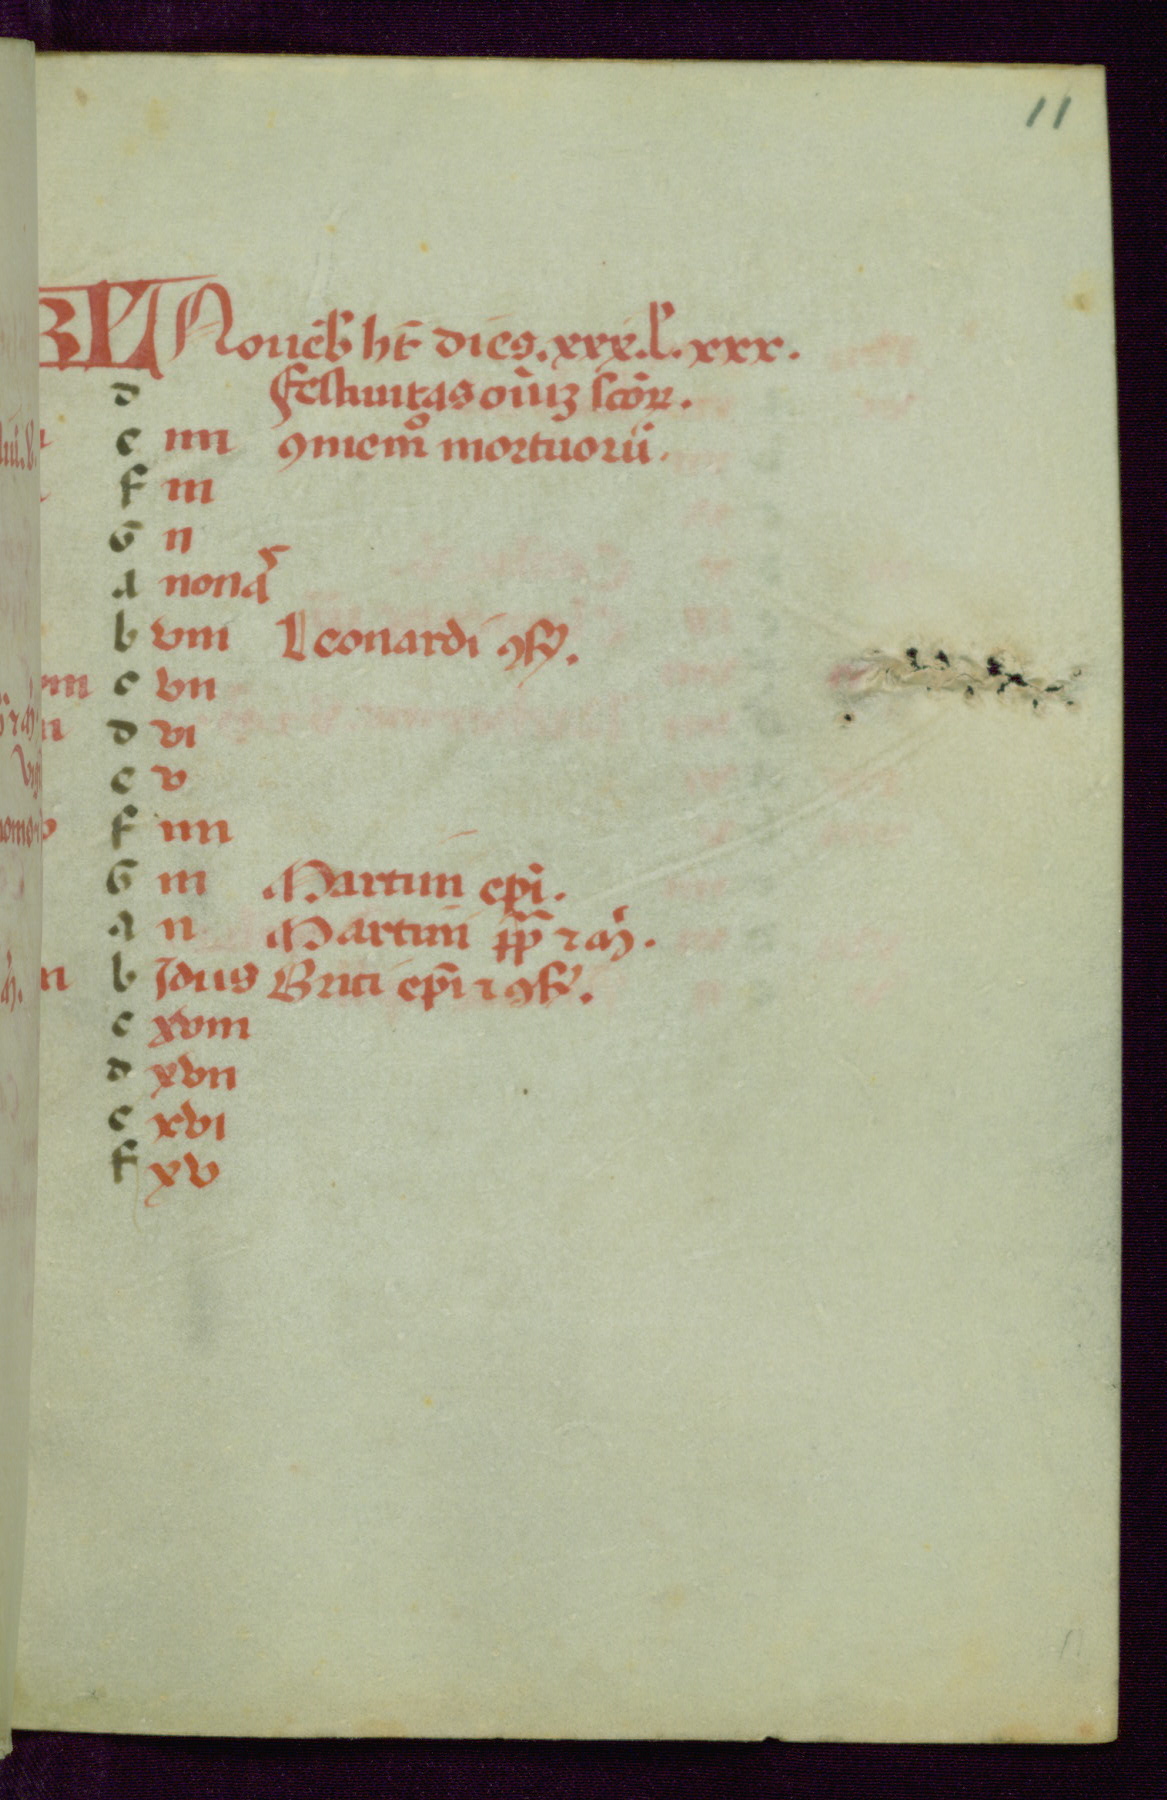 11
KL Nouēb hꝫ dies.xxx.l.xxx.
d festiuitas oīuꝫ scōꝝ.
e iiii ꝯmemº mortuoꝛū.
f iii
G ii
A nonas
b viii Leonardi ꝯf.
c vii
d vi
e v
f iiii
G iii Martini epī.
A ii Martini pp̄ ⁊ m̄.
b Idus Brici epī ⁊ ꝯf.
c xviii
d xvii
e xvi
f xv